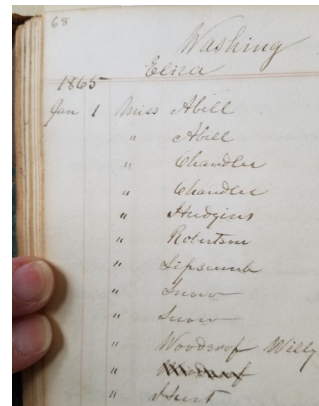 68
Washing
Eliza
1865
Jan 1 Miss Abell
" Abell
" Chandler
" Chandler
" Hudgins
" Robertson
" Lipscomb
" Snow
" Snow
" Woodroof Willy
"
" Hurt